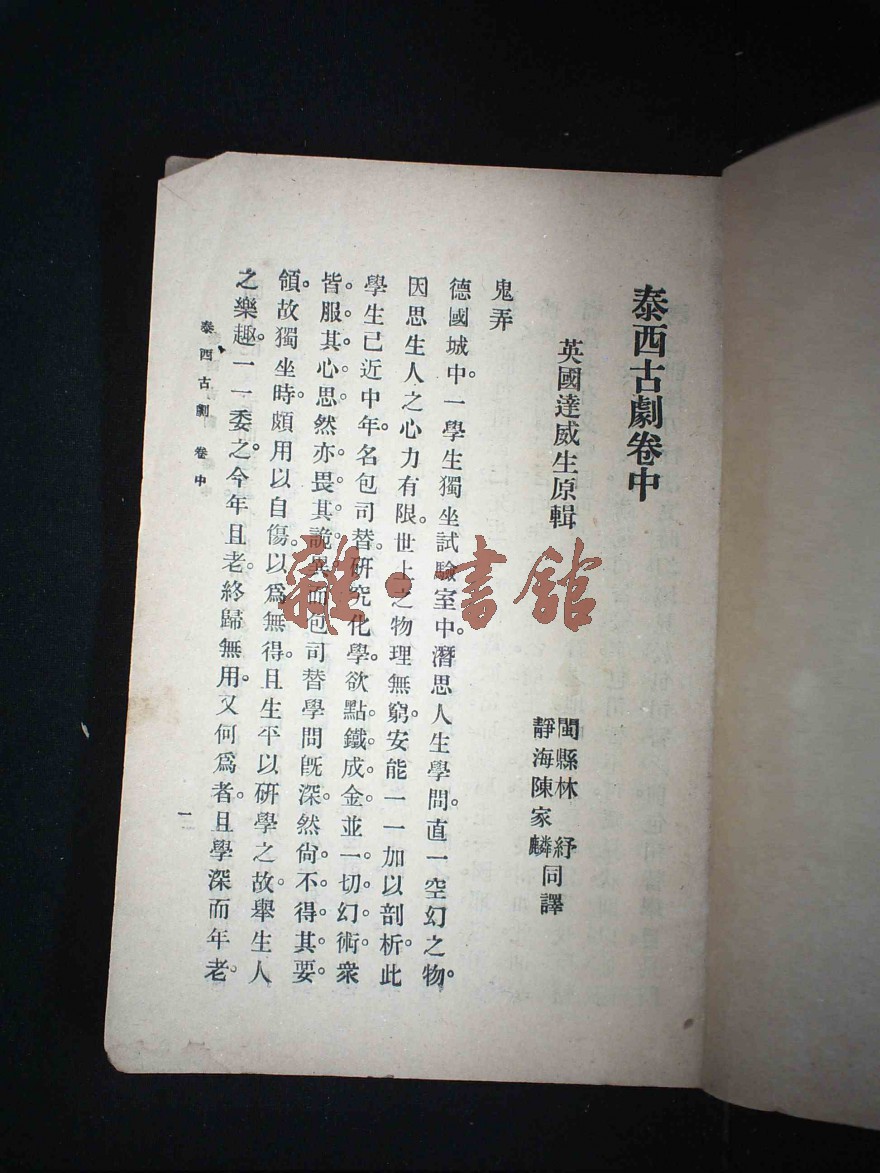 泰西古劇卷中
英國達威生原輯
閩縣林　紓
靜海陳家麟同譯
鬼弄
德國城中一學生獨坐試驗室中。潛思人生學問。直一空幻之物。
因思生人之心力有限。世上之物理無窮。安能一一加以剖析。此
學生已近中年。名包司替。研究化學。欲點鐵成金。並一切幻術。衆
皆服其心思。然亦畏其詭異。而包司替學問旣深。然尙不得其要
領。故獨坐時。頗用以自傷。以爲無得。且生平以研學之故。舉生人
之樂趣。一一委之。今年且老。終歸無用。又何爲者。且學深而年老。
泰西古劇　卷中
一
雜·書館